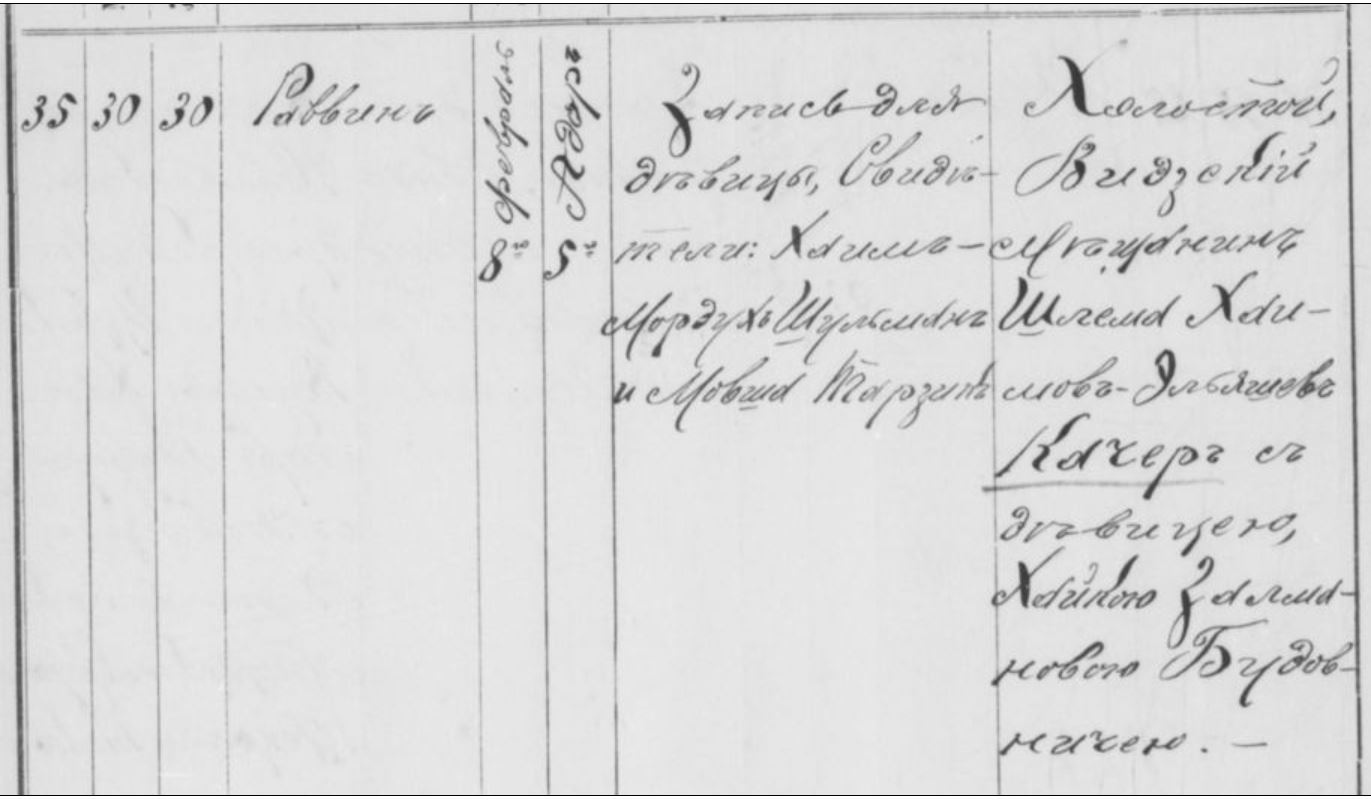 35 30 30 Раввинъ
Февраль
8го
Адаръ
5го
Запись для
дѣвицы, Свидѣ-
тели: Хаимъ-
Мордухъ Шульманъ
и Мовша Тарзинъ
Холостой,
Видзскій
Мѣщанинъ
Шлема Хаи-
мовъ-Эльяшевъ
Качеръ съ
дѣвицею,
Хайкою Залма-
новою Будов-
ничею. —